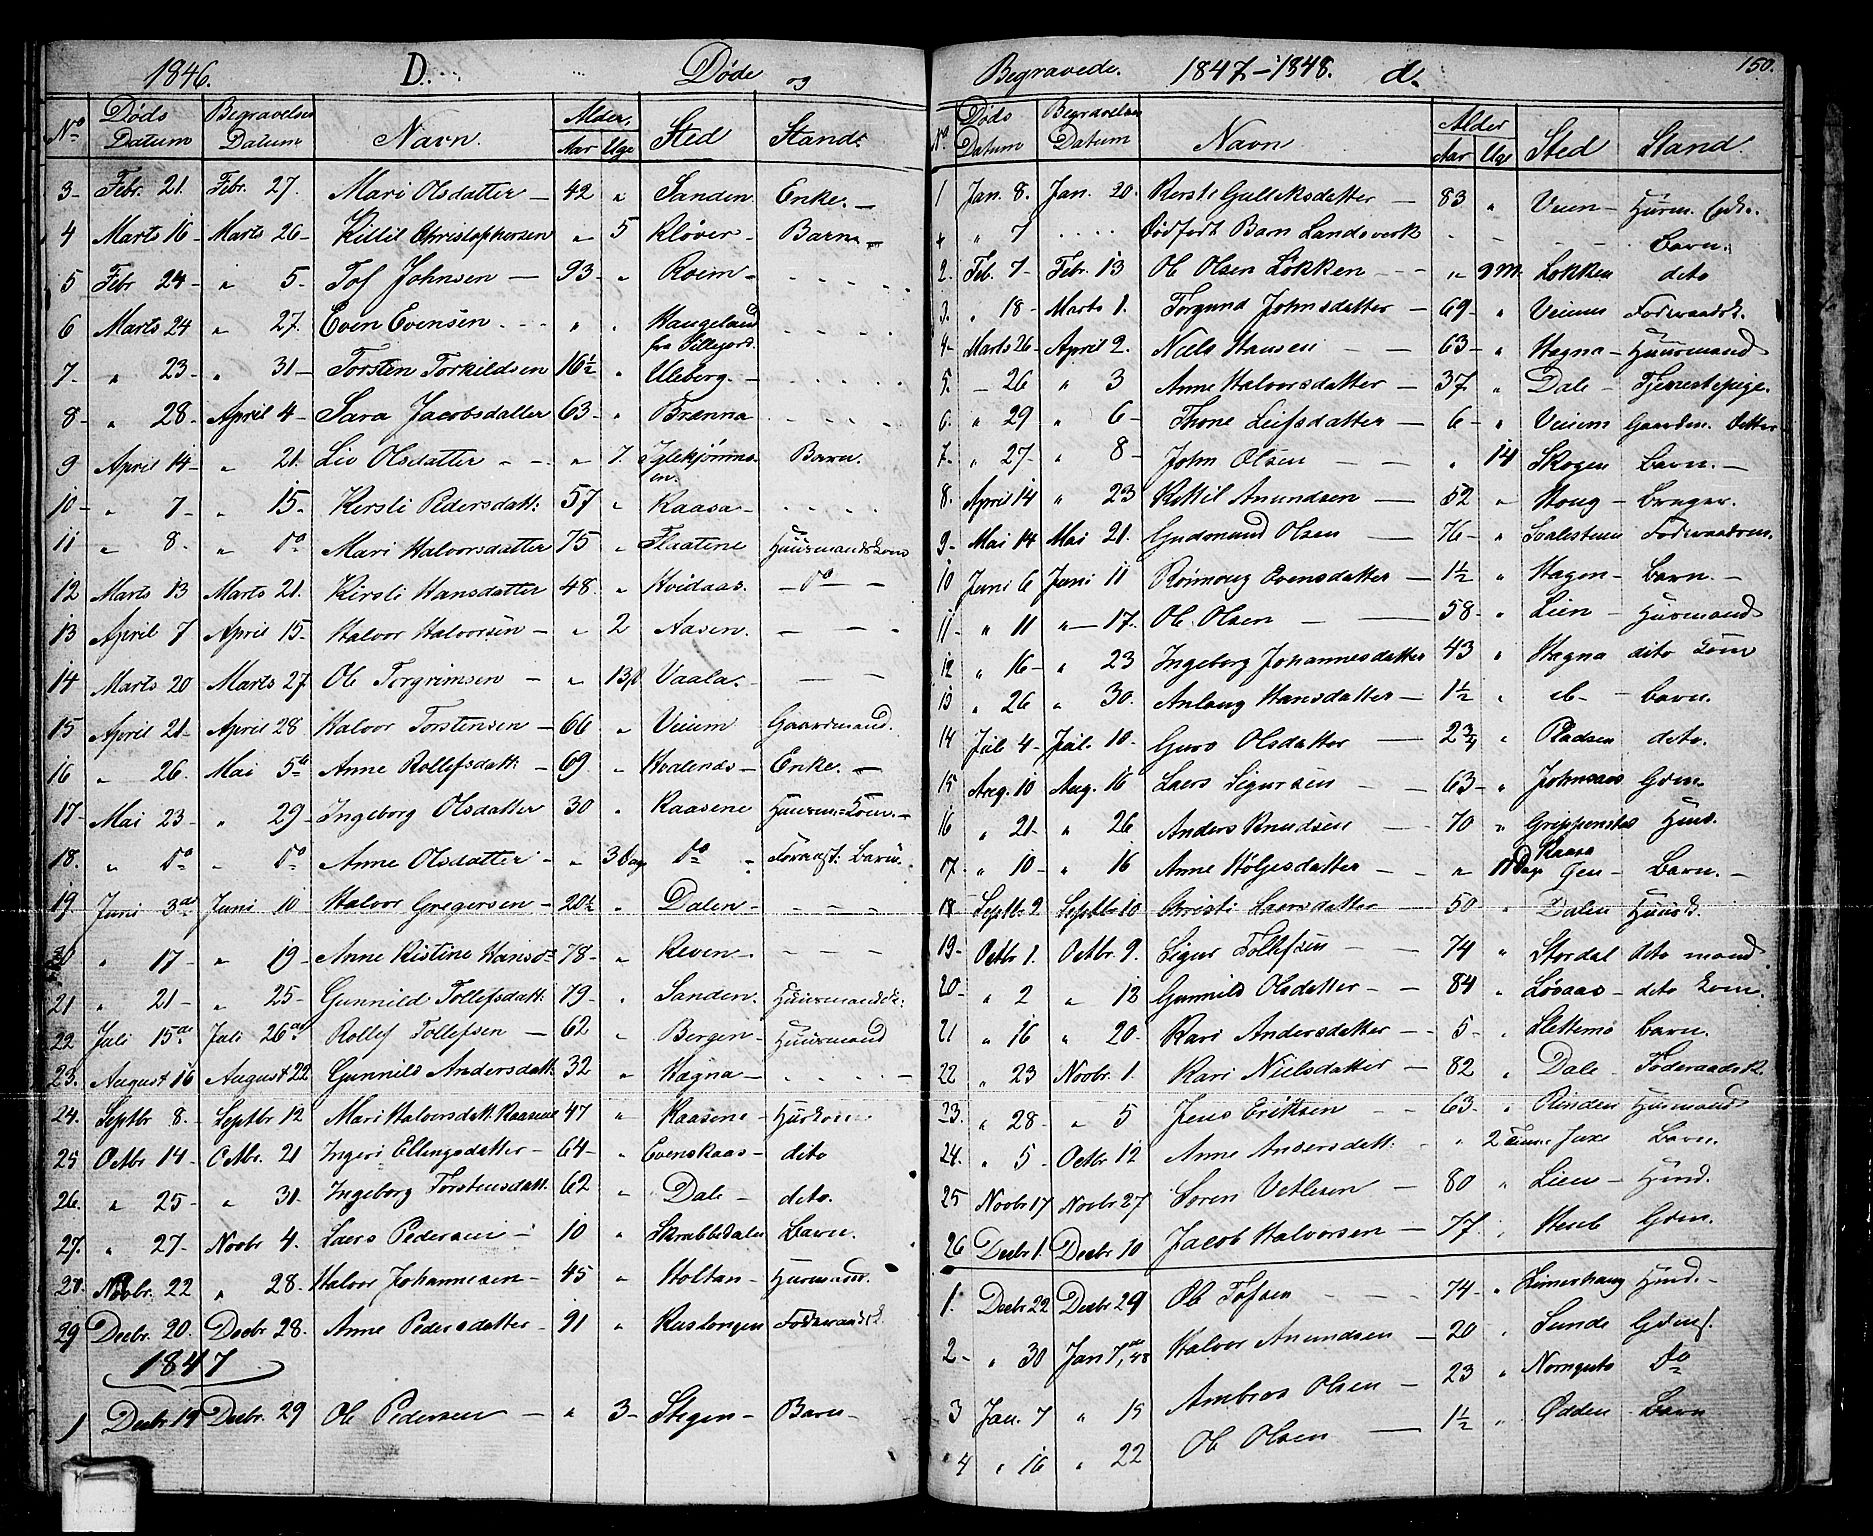 1846. D. Døde og
No Døds Datum Begravelses Datum Navn. Alder. Aar Uge Sted Stand
3 Febr. 21. Febr. 27. Mari Olsdatter 42 " Sanden Enke.
4 Marts 16 Marts 26 Kittil Christophersen " 5 Kløver Barn
5 Febr 24 " 5. Tof Johnsen 93 " Roim
6 Marts 24 " 27. Even Evensen " " Haugeland fra Sillejord.
7. " 23 " 31 Torsten Torkildsen 16½ " Uleberg.
8 " 28 April 4 Sara Jacobsdatter 63 " Brenna
9 April 14 " 21. Liv Olsdatter " 7.  Barn.
10 " 7 " 15 Kersti Pedersdatt: 57 " Raasa
11 " 8 " do Mari Halvorsdatter 75 " Flaatene Huusmandskone
12 Marts 13 Marts 21. Kirsti Hansdatter 48. " Hvidaas. do
13 April 7 April 15 Halvor Halvorsen " 2 Aasen.
14 Marts 20 Marts 27 Ole Torgrimsen " 13 Vaala.
15 April 21 April 28 Halvor Torstensen 66 " Veium Gaardmand.
16 " 26. Mai 5te Anne Rollefsdatt: 69 " Enke.
17 Mai 23 " 29 Ingeborg Olsdatter 30 " Raasene Huusm: Kone.
18. " do " do Anne Olsdatter " 3 Dage do Foranst: Barn.
19. Juni 3de Juni 10 Halvor Gregersen 20½ " Dalen
20 " 17 " 19 Anne Kistine Hansd 78 " Reven
21 " 21 " 25 Gunnild Tollefsdatt: 79 " Sanden. Huusmandsk:
22 Juli 15de Juli 26de Rollef Tollefsen 62 " Bergen Huusmand
23. August 16 August 22 Gunnild Andersdatt: 32 " Hagna
24. Septbr 8. Septbr 12 Mari Halvorsdatt. Raasene 47 " Raasene Huskone
25 Octbr 14 Octbr. 21 Ingeri Ellingsdatter 64 " Evenskaas dito
26. " 25 " 31. Ingeborg Torstensdatt. 62 " Dale dito.
27. " 27 Novbr 4. Laers Pedersen 10 " Skrabbedalen Barn.
28. Novbr. 22 " 28. Halvor Johannesen 45 " Holtan Husmand.
29 Decbr. 20. Decbr 28. Anne Pedersdatter 91 " Foderaadsk.
1847
1 Decbr 19 Decbr. 29 Ole Pedersen " 3 Stegen Barn
Begravede. 1847–1848. d. 150.
No Døds Datum Begravelses Datum Navn Alder Aar Uge Sted Stand.
1 Jan. 8. Jan. 20. Kersti Gulliksdatter 83 " Veien Husm.
" 7 Dødfødt Barn Landsverk Barn.
2. Feb. 7 Febr. 13 Ole Olsen Løkken " 9 m. Løkken dito
3. " 18 Marts 1. Torgund Johnsdatter 69 " Veium Foderaadsk.
4 Marts 26 April 2. Niels Hansen 63 " Hagna Huusmand
5. 26 " 3 Anne Halvorsdatter 37 " Dale Tjenestepige.
6. " 29 " 6 Thone Leifsdatter 6 " Veium Gaardm. Datter
7. " 27 " 8 John Olsen " 14 Skogen Barn.
8. April 14 " 23 Kittil Anundsen 52 " Houg Bruger.
9 Mai 14 Mai 21. Gudmund Olsen 76 " Foderaadsm.
10 Juni 6 Juni 11 Roimoug Evensdatter 1½ " Hagen Barn.
11 " 11 " 17. Ole Olsen 58 " Lien Husmand
12 " 16 " 23 Ingeborg Johannesdatter 43 " Hagna dito Kone
13 " 26 " 30. Anlaug Hansdatter 1½ " ib Barn.
14 Juli 4 Juli. 10. Guro Olsdatter 2¾ " Pladsen dito.
15 Aug. 10 Aug. 16 Laers Sigursen 63 " Johnsaas Gdm.
16 " 21 " 26 Anders Knudsen 70 " Huus.
17. " 10 " 16 Anne Holjesdatter " 11 Dage Raasa Barn.
18 Septbr 2. Septbr 10 Christi Laersdatter 50 " Dalen Huusk.
19 Octbr 1. Octbr. 9. Sigur Tollefsen 74 " Stordal dito mand
20 " 2 " 12 Gunnild Olsdatter 84 " Løvaas dito Kone.
21 " 16 " 20 Kari Andersdatter 5 " Slettemo Barn.
22 " 23 Novbr. 1. Kari Nielsdatter 82 " Dale Føderaadsk.
23. " 28 " 5 Jens Eriksen 63. " Rinden Husmand
24. " 5 Octbr 12 Anne Andersdatt: " 2 Time Juxe Barn.
25 Novbr 17 Novbr 27 Soren Vetlesen 80 " Lien Husd.
26 Decbr 1. Decbr 10 Jacob Halvorsen 77. " Heseb Gdm.
1. Decbr 22 Decbr 29 Ole Tofsen 74 " Husd.
2 " 30 Jan 7de, 48 Halvor Anundsen 20 " Sunde Gdms.
3 Jan. 7 " 15 Ambros Olsen 23 " do
4 " 16 " 22 Ole Olsen 1½ " Ødden Barn